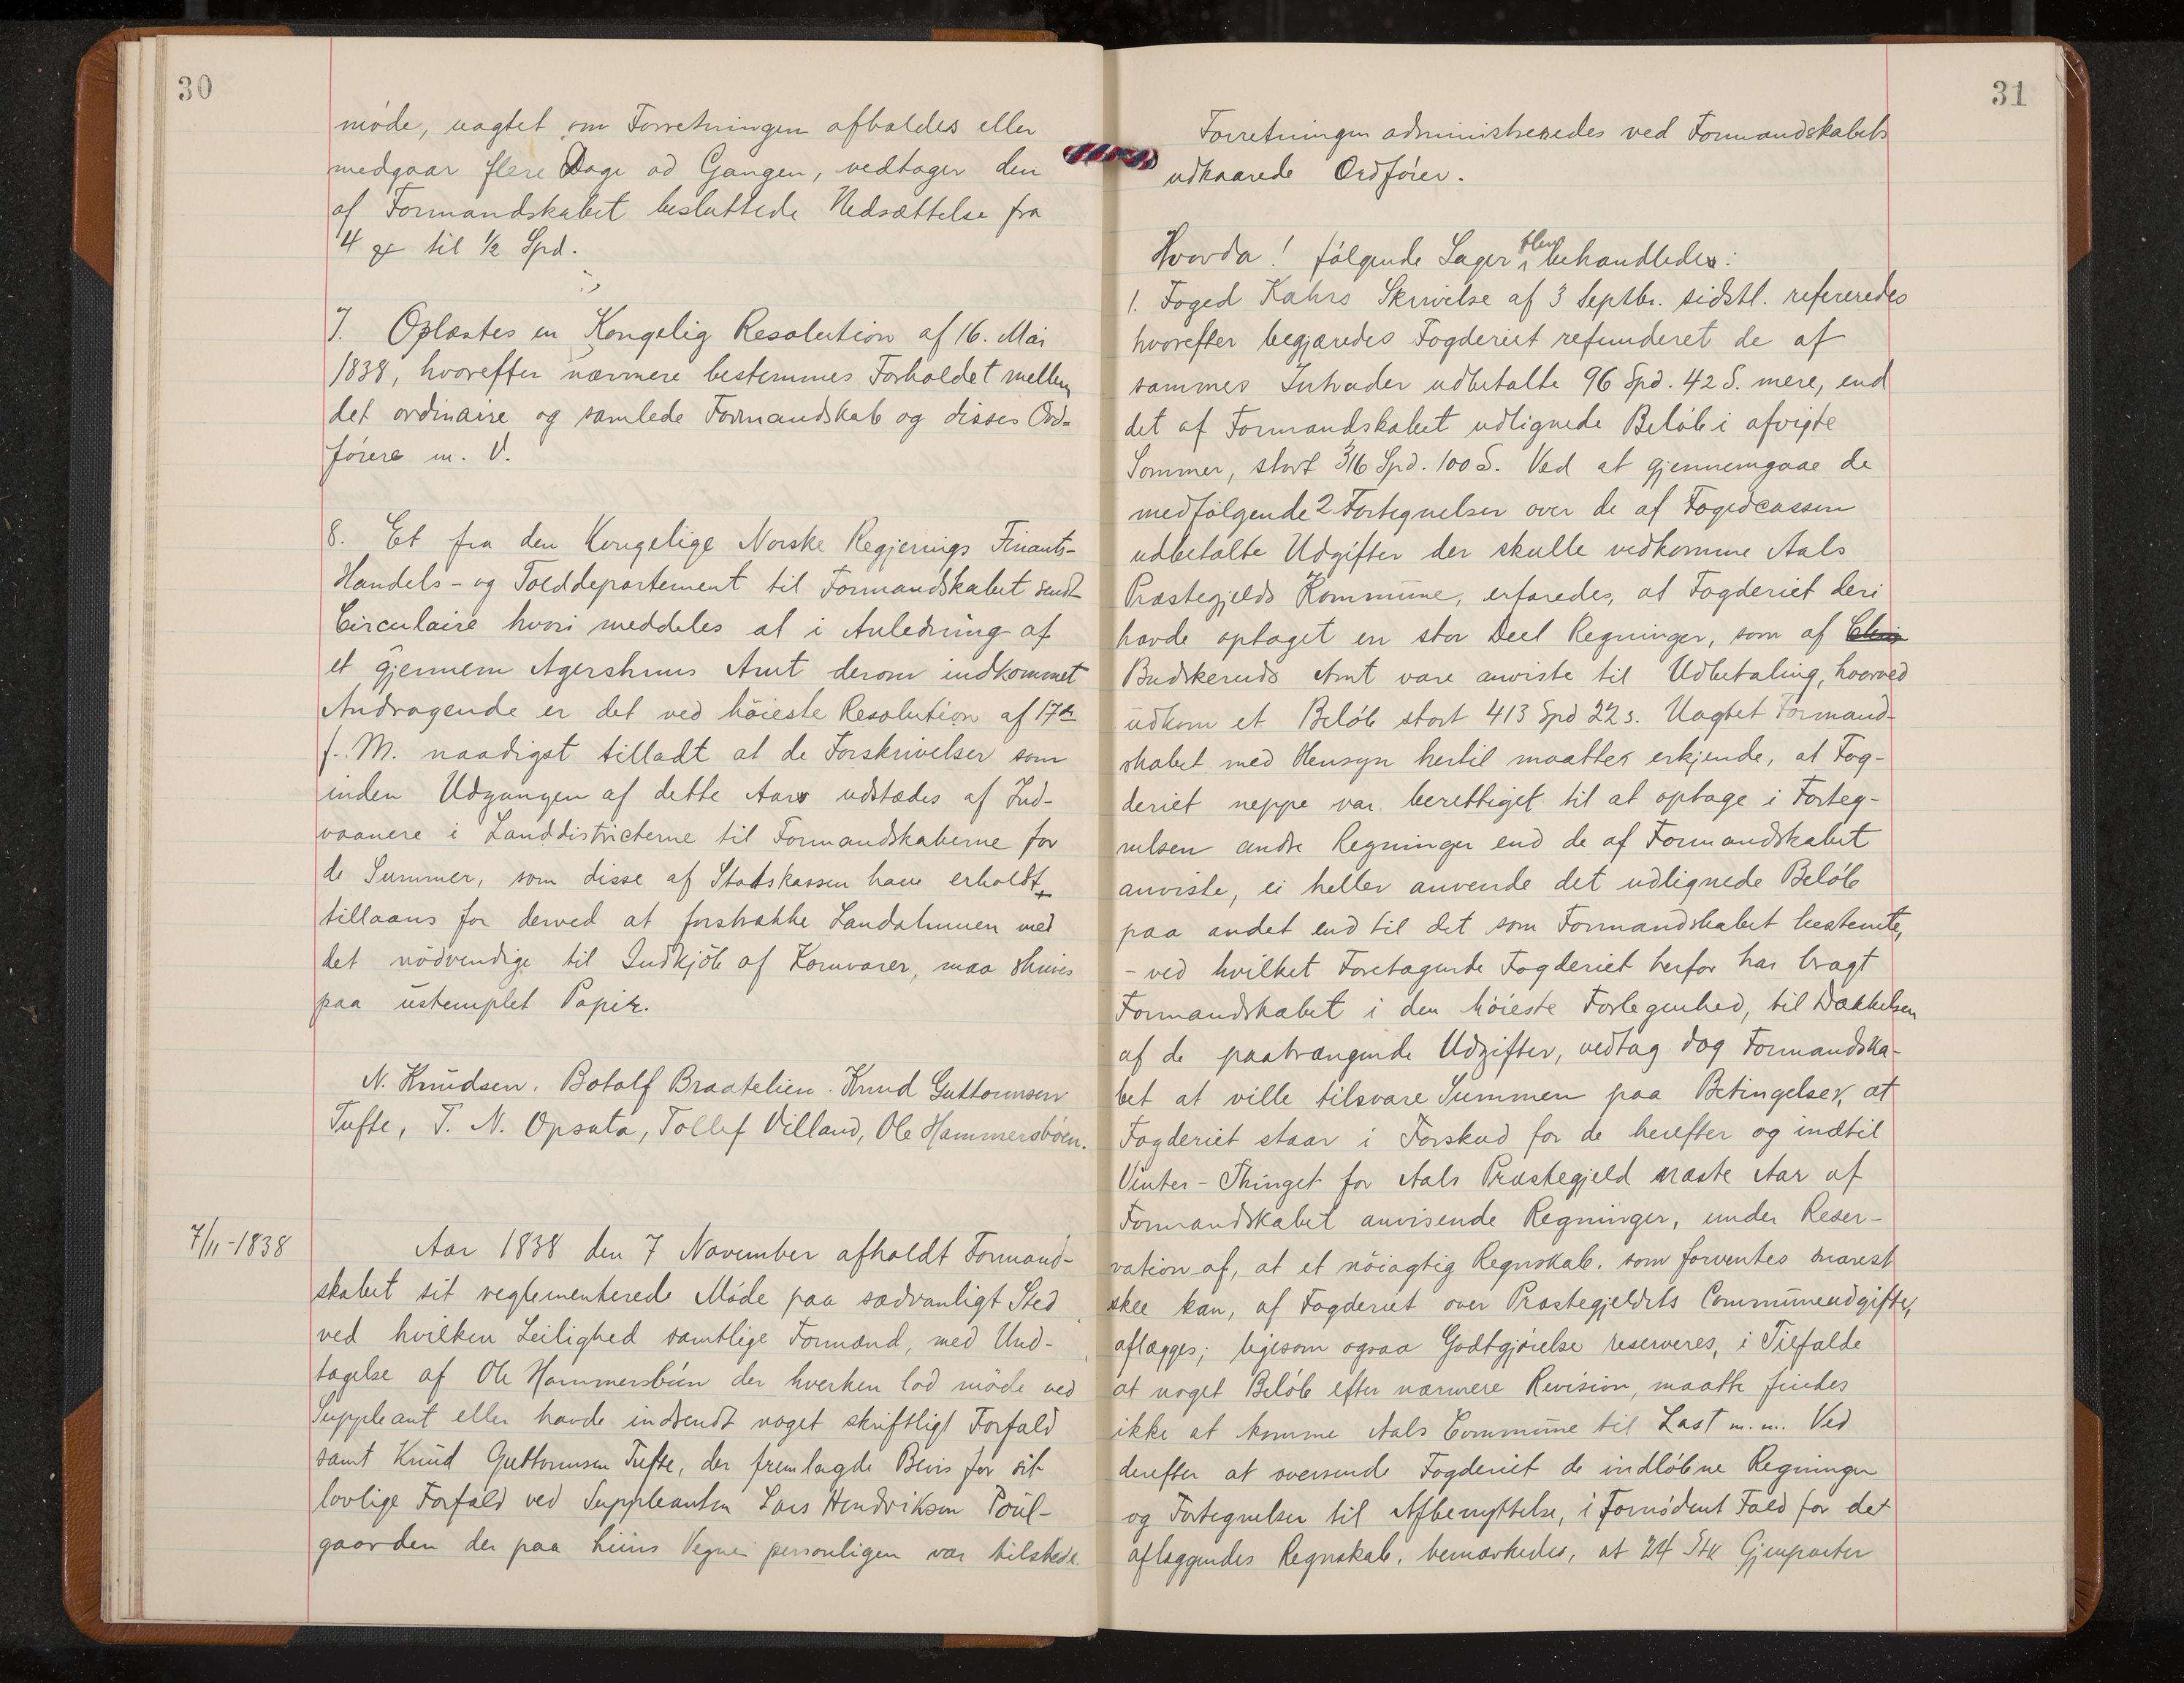 30
møde, uagtet om Forretningen afholdes eller
medgaar flere Dage ad Gangen, vedtager den
af Formandskabet besluttede Nedsættelse fra
4 til 1/2 Spd.
7. Oplæstes en Kongelig Resolution af 16. Mai
1838, hvorefter nærmere bestemmes Forholdet mellem
det ordinaire og samlede Formandskab og disses Ord-
førere m. V.
8. Et fra den Kongelige Norske Regjerings Finants-
Handels- og Tolddepartement til Formandskabet sendt
Circulaire hvori meddeles at i Anledning af
et gjennem Agershuus Amt derom indkommet
Andragende er det ved høieste Resolution af 17de
f. M. naadigst tilladt at de Forskrivelser som
inden Udgangen af dette Aar udstædes af Ind-
vaanere i Landdistricterne til Formandskaberne for
de Summer, som disse af Statskassen have erholdt
tillaans for derved at forstrække Landalmuen med
det nødvendige til Indkjøb af Kornvarer, maa skrives
paa ustemplet Papir.
N. Knudsen. Botolf Braatelien. Knud Guttormsen
Tufte, T. N. Opsata, Tollef Villand, Ole Hammersbøen.
7/11-1838
Aar 1838 den 7 November afholdt Formand-
skabet sit reglementerede Møde paa sædvanligt Sted
ved hvilken Leilighed samtlige Formænd, med Und-
tagelse af Ole Hammersbøen der hverken lod møde ved
Suppleant eller havde indsendt noget skriftligt Forfald
samt Knud Guttormsen Tufte, der fremlagde Bevis for sit
lovlige Forfald ved Suppleanten Lars Hendriksen Poul-
gaarden der paa hiins Vegne personligen var tilstede
31
Forretningen administreredes ved Formandskabets
udkaarede Ordfører.
Hvorda! følgende Sager blev behandlede:
1. Foged Kahrs Skrivelse af 3 Septbr. sidstl. refereredes
hvorefter begjæredes Fogderiet refunderet de af
sammes Intrader udbetalte 96 Spd. 42 S. mere, end
det af Formandskabet udlignede Beløb i afvigte
Sommer, stort 316 Spd. 100 S. Ved at gjennemgaae de
medfølgende 2 Fortegnelser over de af Fogedcassen
udbetalte Udgifter der skulle vedkomme Aals
Præstegjelds Kommune, erfaredes, at Fogderiet deri
havde optaget en stor Deel Regninger, som af
Buskeruds Amt vare anviste til Udbetaling, hvorved
udkom et Beløb stort 413 Spd 22 s. Uagtet Formand-
skabet med Hensyn hertil maatte erkjende, at Fog-
deriet neppe var berettiget til at optage i Forteg-
nelsen andre Regninger end de af Formandskabet
anviste, ei heller anvende det udlignede Beløb
paa andet end til det som Formandskabet bestemte,
- ved hvilket Foretagende Fogderiet herfor har bragt
Formandskabet i den høieste Forlegenhed, til Dækkelsen
af de paatrængende Udgifter, vedtog dog Formandska-
bet at ville tilsvare Summen paa Betingelse, at
Fogderiet staar i Forskud for de herefter og indtil
Vinter-Thinget for Aals Præstegjeld næste Aar af
Formandskabet anvisende Regninger, under Reser-
vation af, at et nøiagtig Regnskab. som forventes snarest
skee kan, af Fogderiet over Præstegjeldets Communeudgifter,
aflægges; ligesom ogsaa Godtgjørelse reserveres, i Tilfælde
at noget Beløb efter nærmere Revision, maatte findes
ikke at komme Aals Commune til Last m. m. Ved
derefter at oversende Fogderiet de indløbne Regninger
og Fortegnelser til Afbenyttelse, i fornødent Fald for det
aflæggendes Regnskab, bemærkedes, at 24 Stk Gjenparter